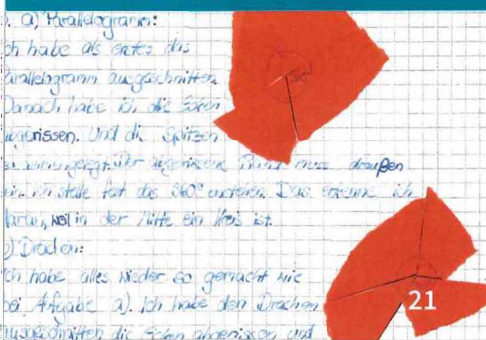 a) Parallelogramm:
ich habe als erstes das
Parallelogramm ausgeschnitten
Danach habe ich die
abgerissen. Und die Spitzen
zusammengelegt. Der abgerissene muss draußen
ich stelle fest das 360° Das erkenne ich
weil in der Mitte ein Kreis ist.
Drachen:
ich habe alles wieder so gemacht wie
bei Aufgabe a). Ich habe den Drachen
ausgeschnitten die Ecken abgerissen und
21